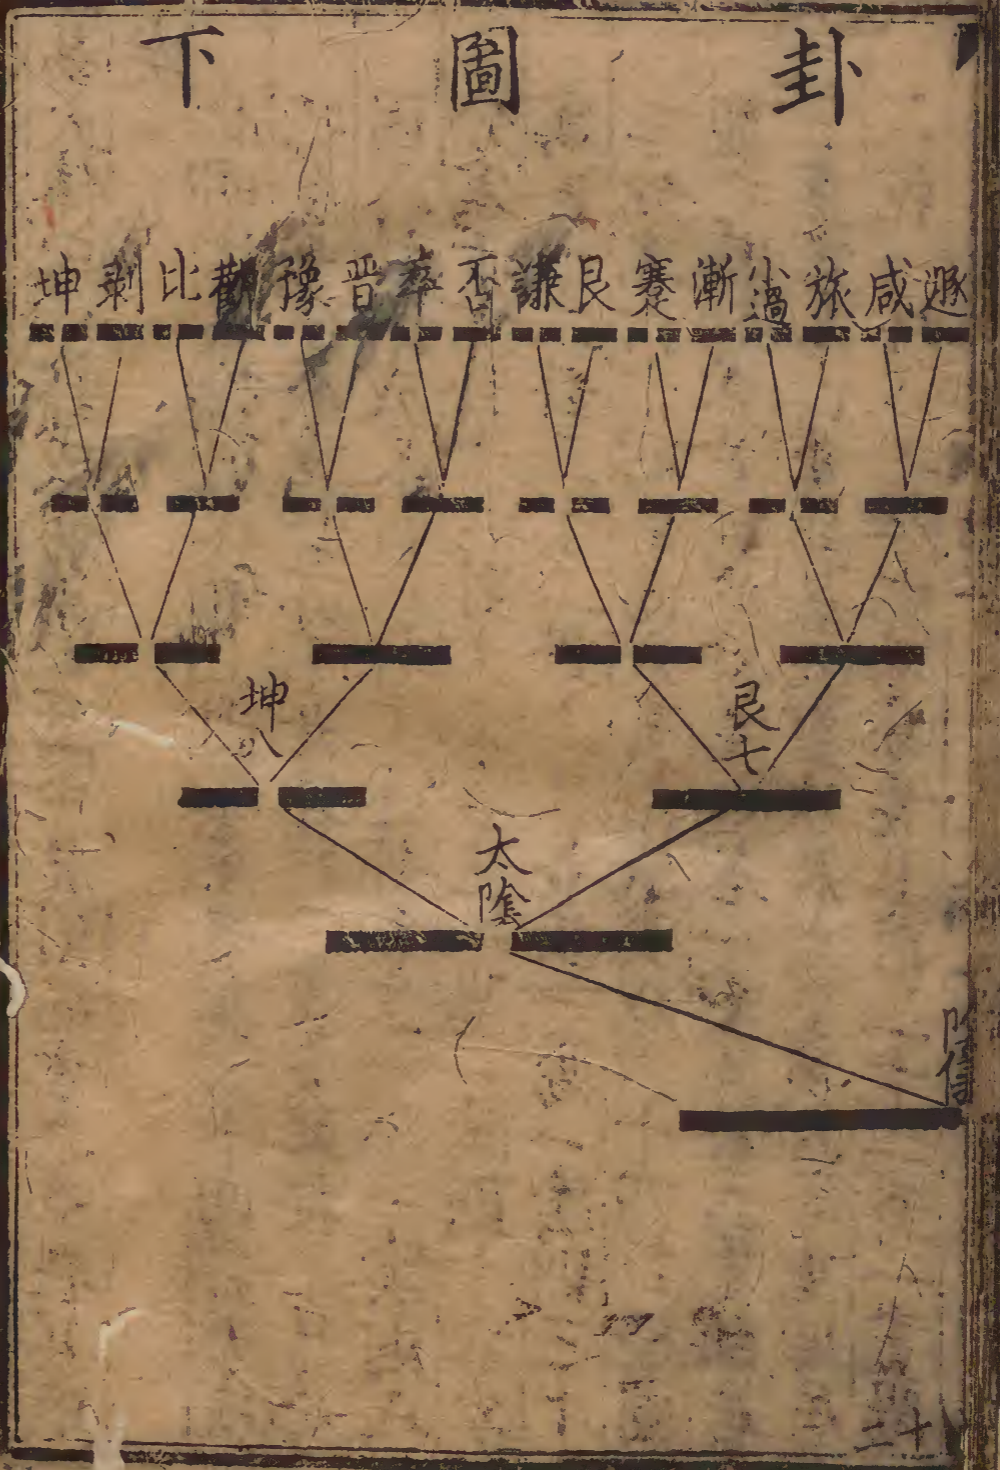 卦圖下
遯咸旅小過漸蹇艮謙否萃晋豫觀比剥坤
艮七
坤八
太陰
陰儀
二十